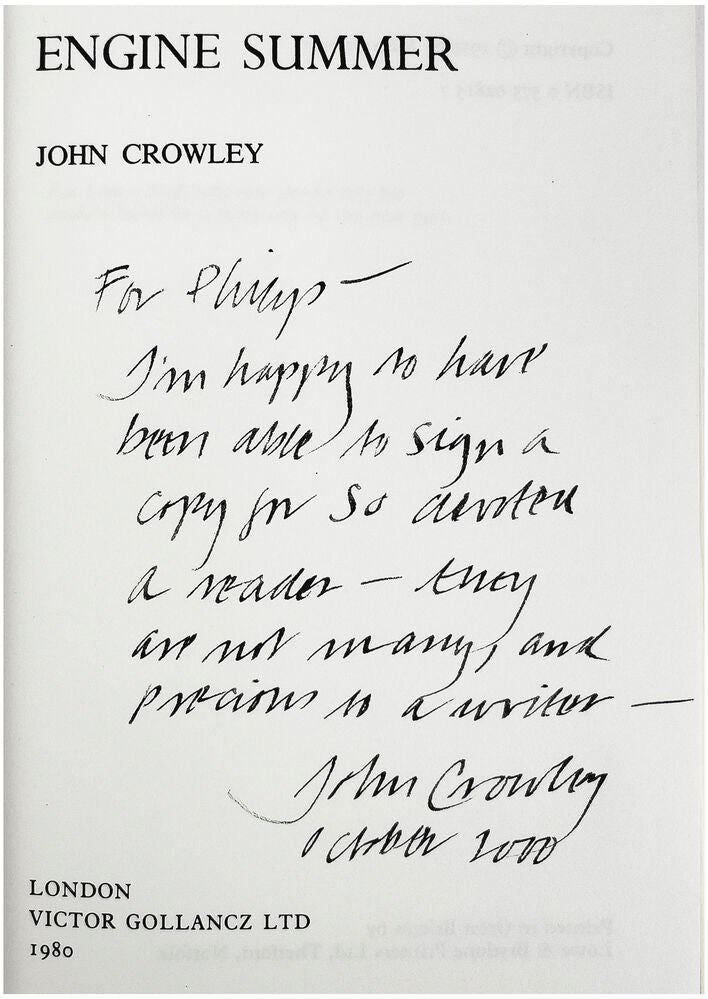 ENGINE SUMMER
JOHN CROWLEY
For Philip —
I'm happy to have
been able to sign a
copy for so devoted
a reader — they
are not many, and
precious to a writer —
John Crowley
October 2000
LONDON
VICTOR GOLLANCZ LTD
1980